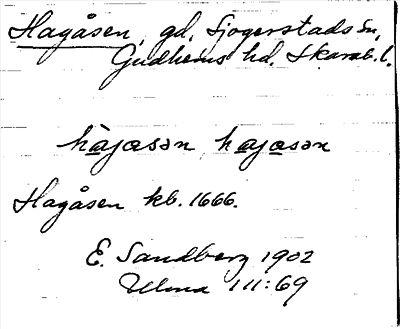 Hagåsen, gd, Sjogerstads sn,
Gudhems hd, Skarab. l.
hàgasən, hagasən
Hagåsen kb. 1666.
E. Sandberg 1902
Ulma 111:69